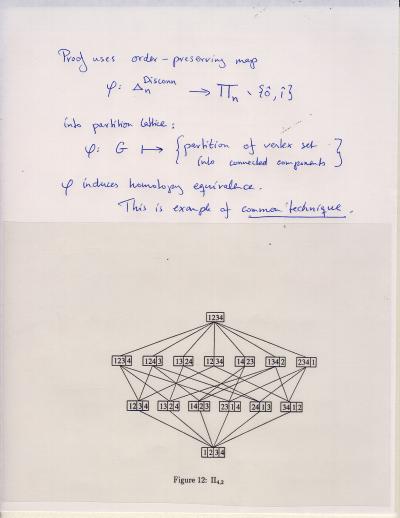 Proof uses order-preserving map
φ: Δₙ^Disconn → Πₙ \ {0̂, 1̂}
into partition lattice:
φ: G ↦ {partition of vertex set
into connected components}
φ induces homotopy equivalence.
This is example of common technique.
1234
123|4 124|3 13|24 12|34 14|23 134|2 234|1
12|3|4 13|2|4 14|2|3 23|1|4 24|1|3 34|1|2
1|2|3|4
Figure 12: Π₄,₂